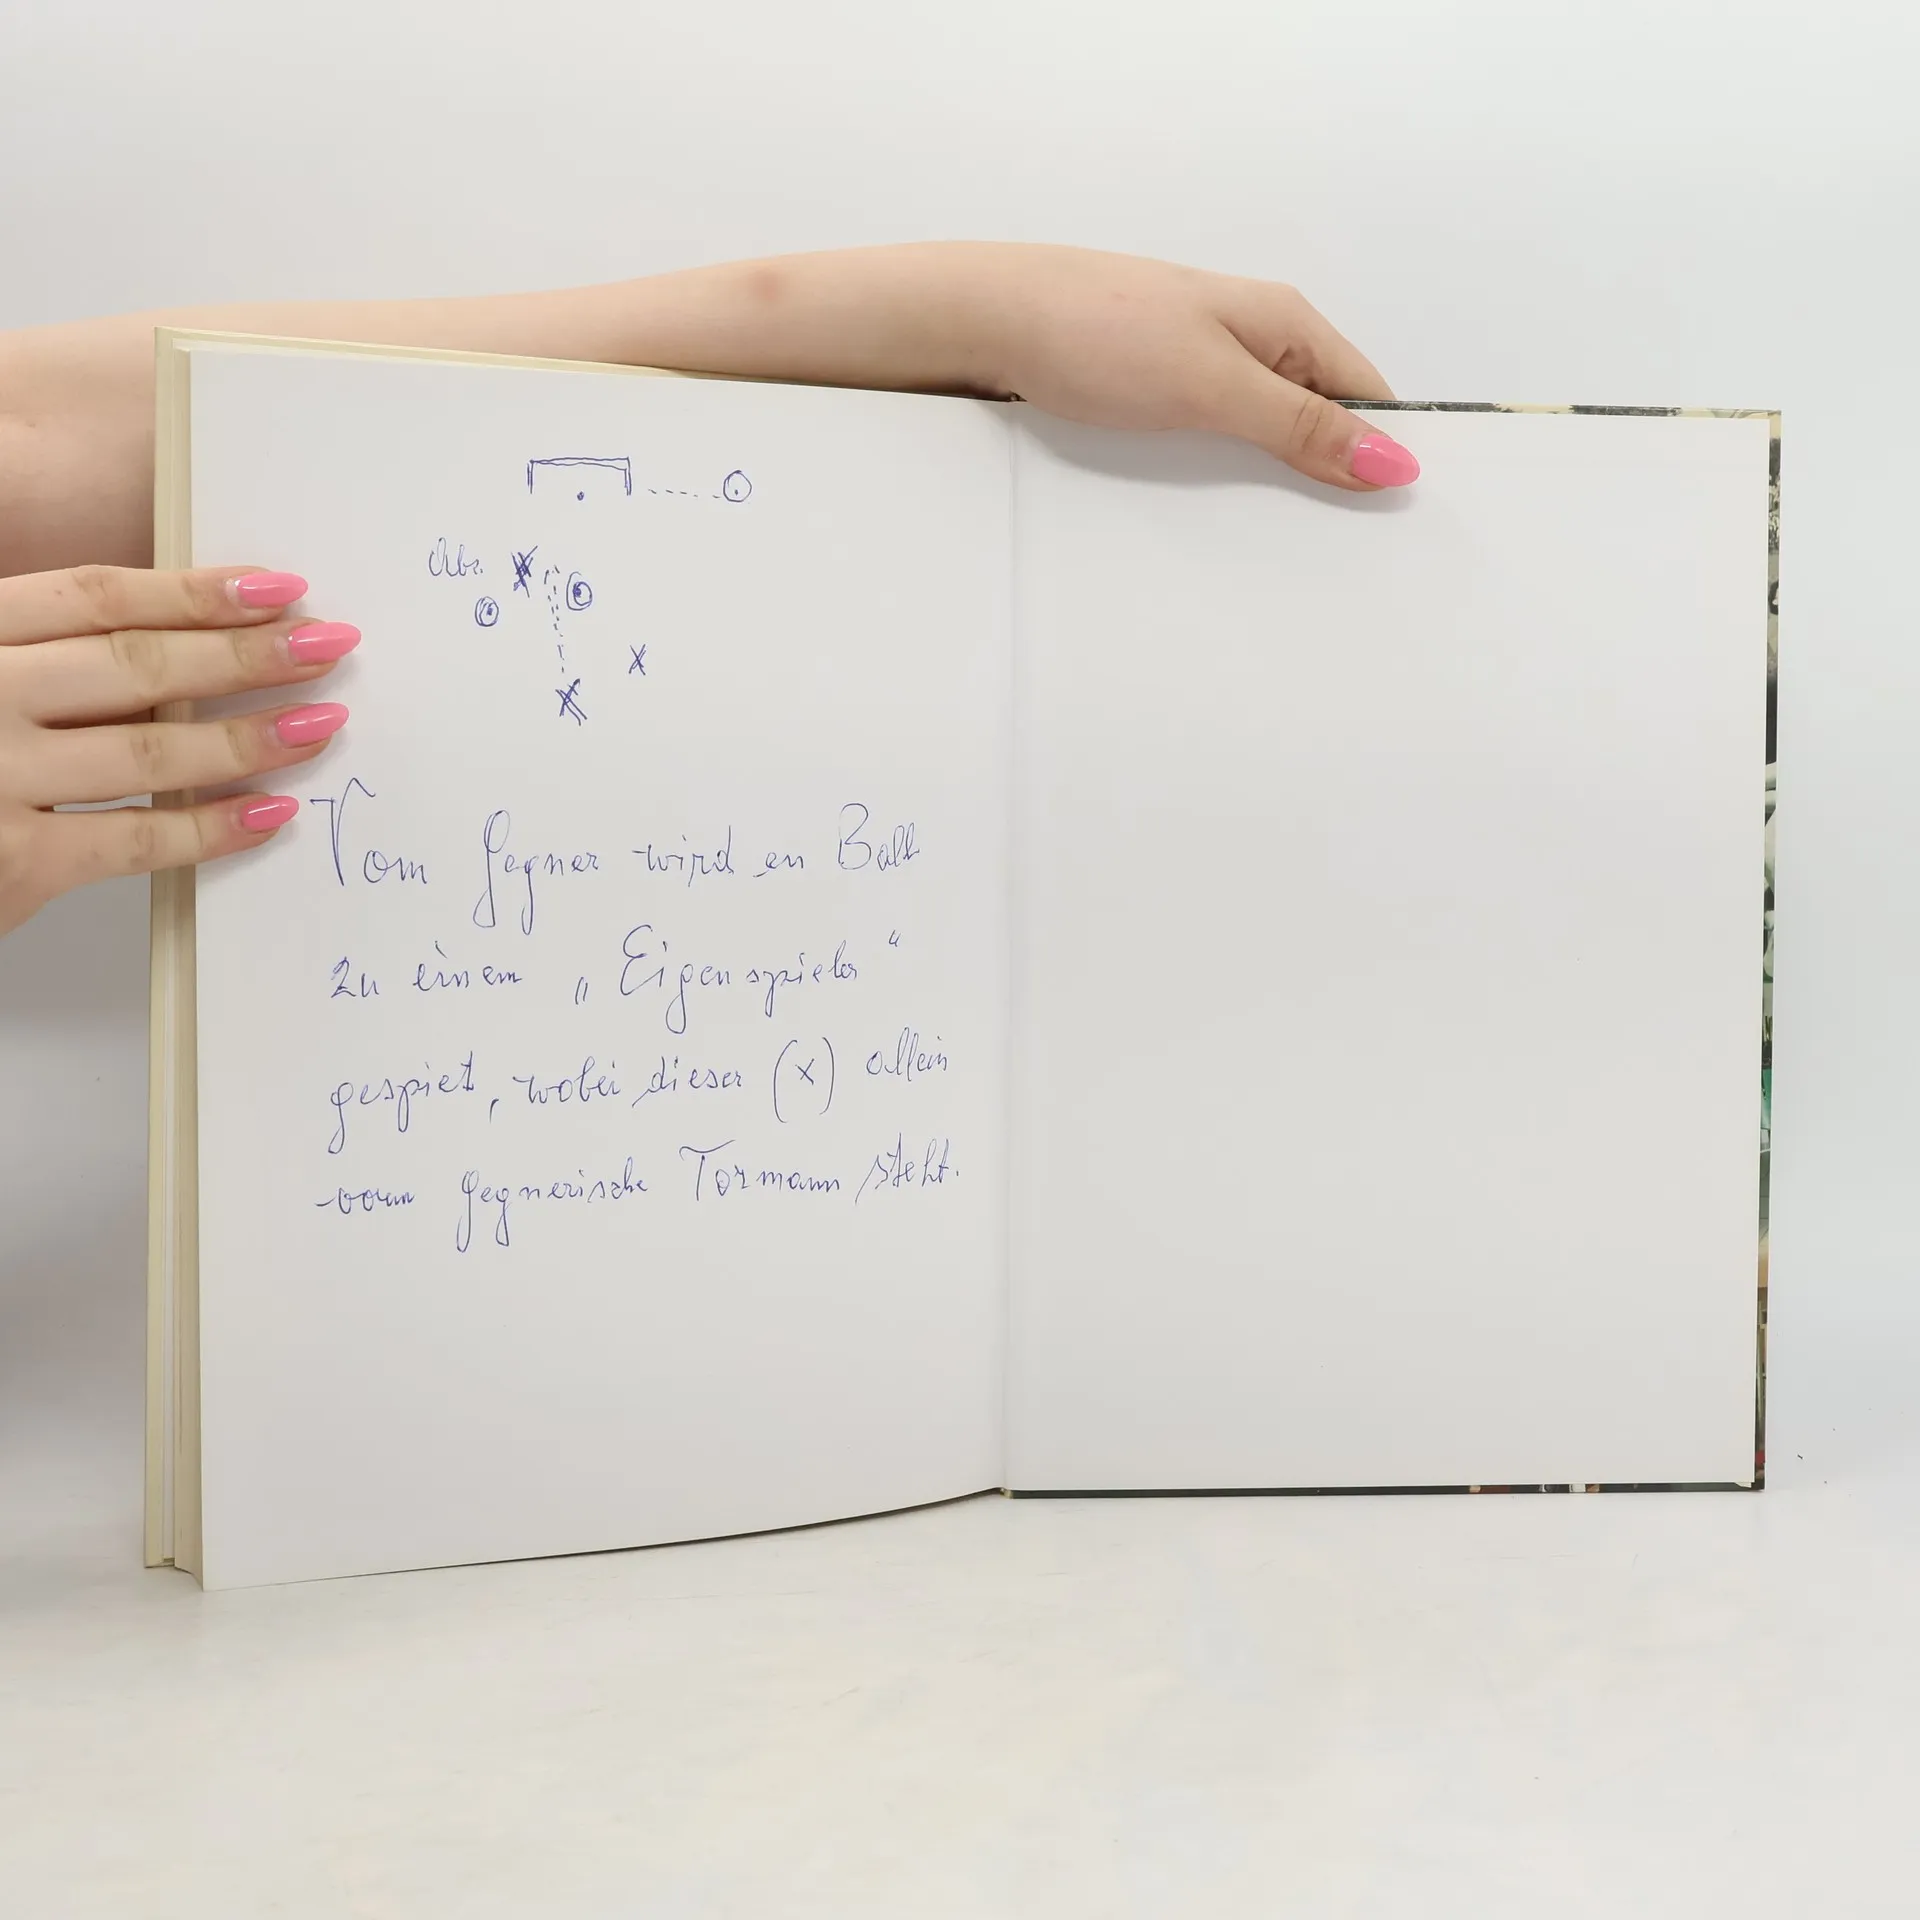 Abs.
Vom Gegner wird en Ball
zu einem „Eigenspieler“
gespiet, wobei dieser (x) allein
vorm gegnerische Tormann steht.